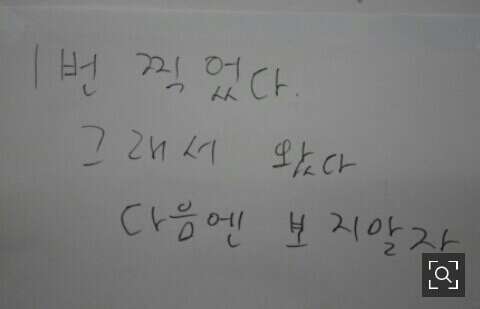 1번 찍었다.
그래서 왔다
다음엔 보지말자